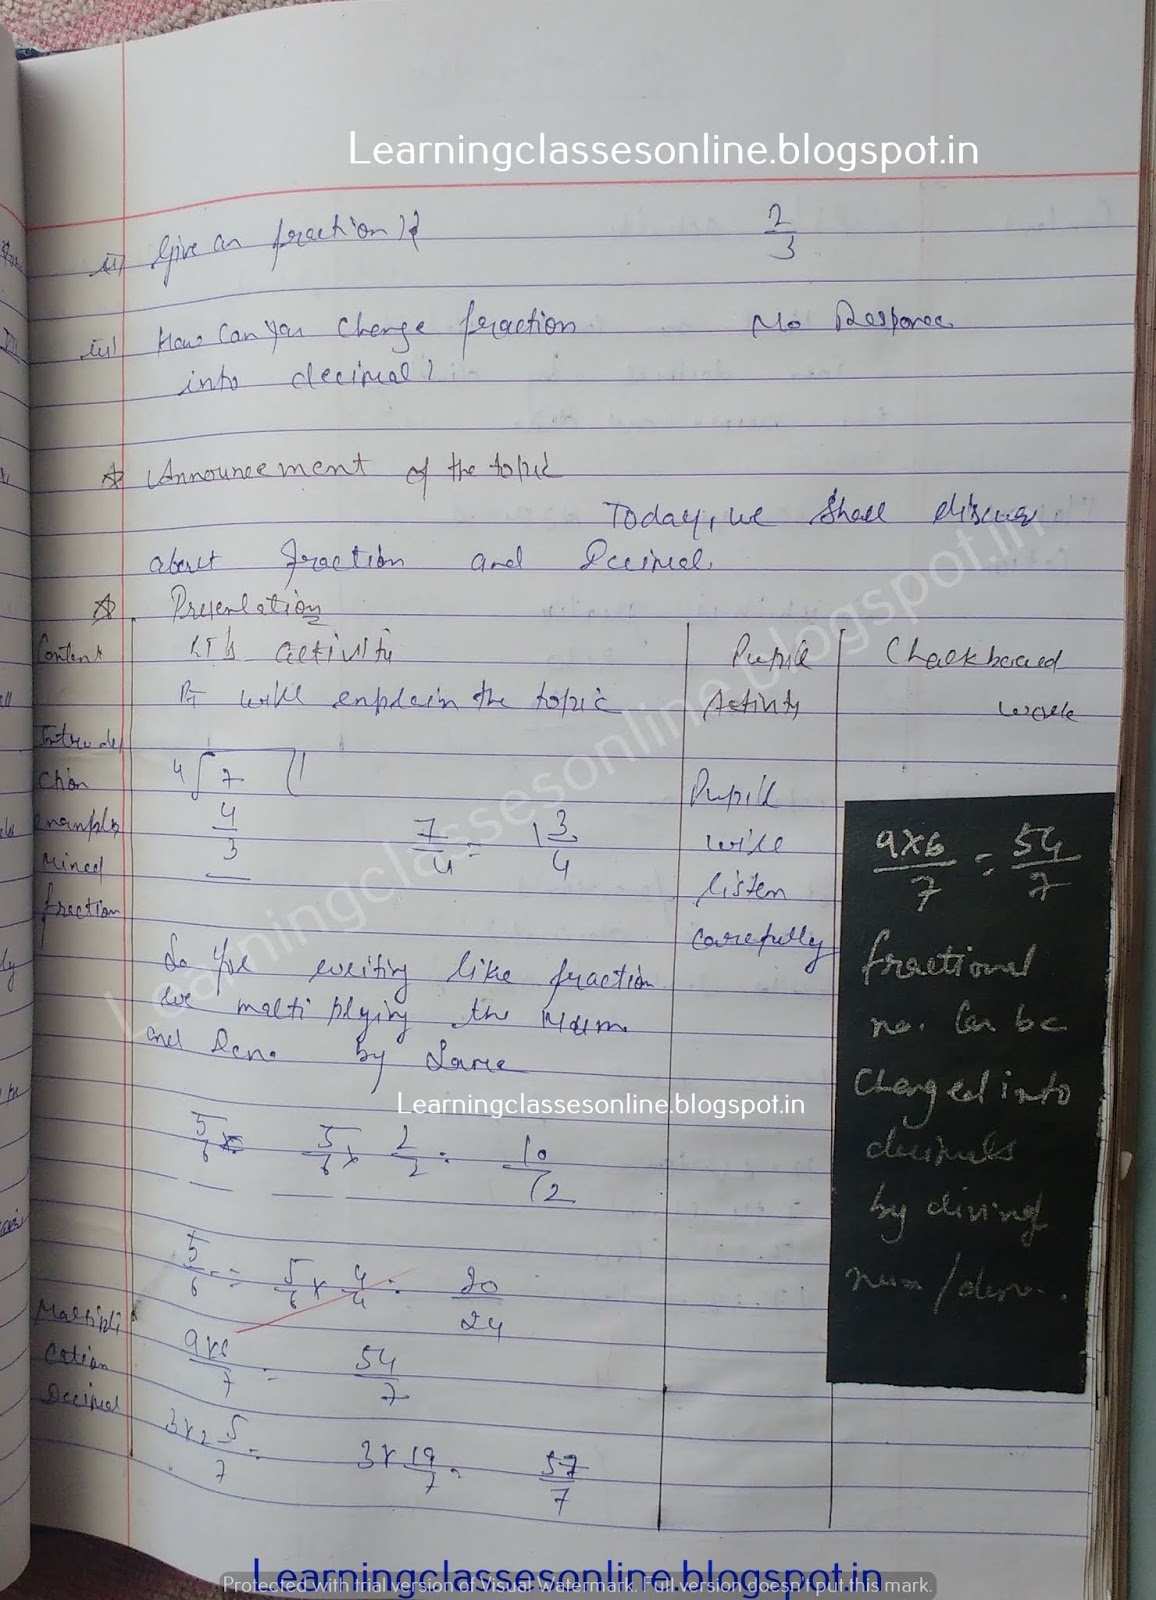 Learningclassesonline.blogspot.in
Give an fraction?
2/3
How can you change fraction
No Response
into decimal?
Announcement of the topic
Today, we shall discuss
about fraction and Decimal.
Presentation
Content
activity
Pupil
Activity
Chalkboard
work
PT will explain the topic
Introdu
ction
example
Mixed
fraction
4 7 1
4
3
7/4 = 1 3/4
Pupil
will
listen
carefully
So for writing like fraction
we multiplying the Num.
and Den. by Same
Learningclassesonline.blogspot.in
5/6 = 5/6 × 2/2 = 10/12
5/6 = 5/6 × 4/4 = 20/24
Multipli
cation
Decimal
9×6/7 = 54/7
3×2 5/7 = 3×19/7 = 57/7
9×6/7 = 54/7
fractional
no. can be
changed into
decimals
by diving
num/den..
Learningclassesonline.blogspot.in
Learningclassesonline.blogspot.in
Protected with trial version of Visual Watermark. Full version doesn't put this mark.